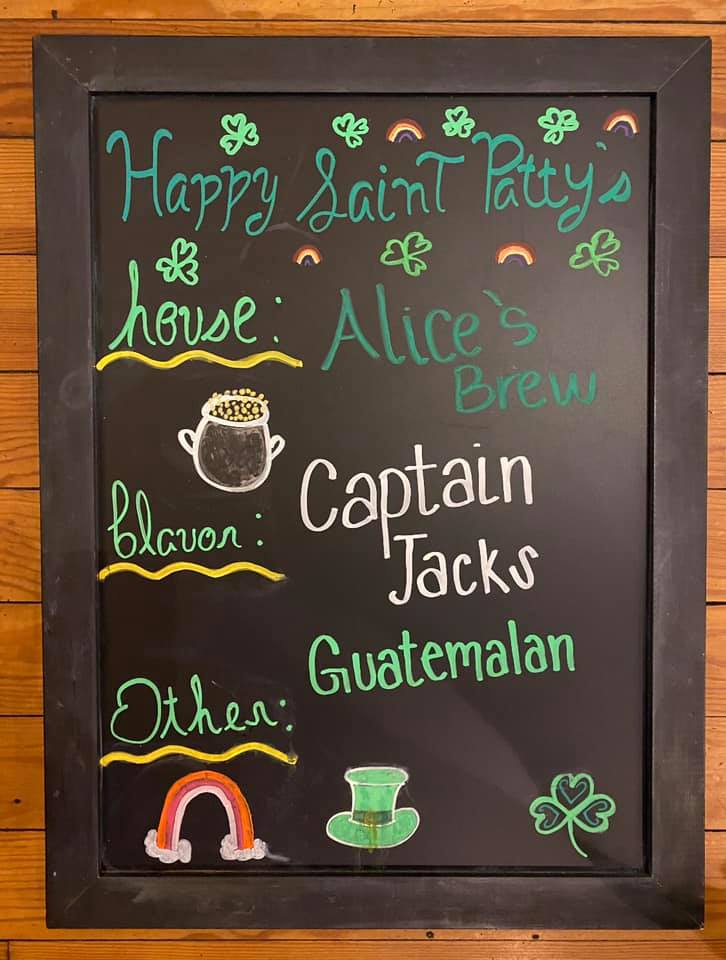 Happy Saint Patty's
house: Alice's
Brew
flavor: Captain
Jacks
Other: Guatemalan